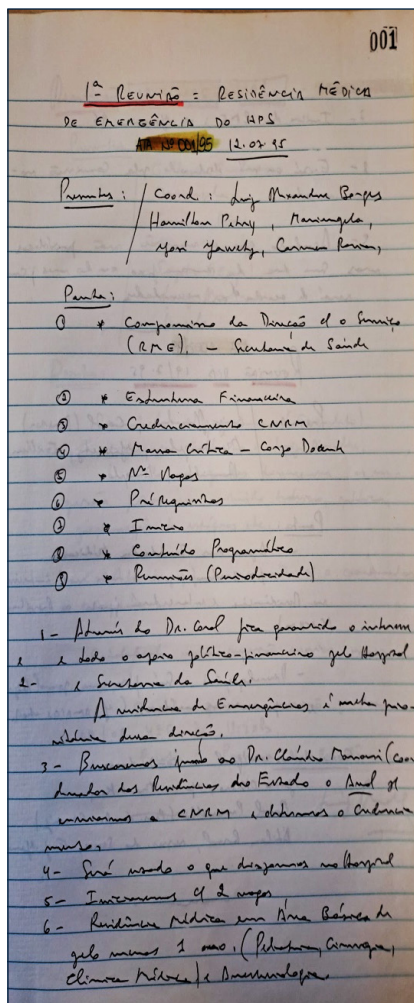 001
1ª REUNIÃO = RESIDÊNCIA MÉDICA
DE EMERGÊNCIA DO HPS
ATA Nº 001/95 12.07.95
Presentes: Coord: Luiz Alexandre Borges
Hamilton Petry, Mariangela,
José Carmen
Pauta:
① * Compromisso da Direção c/ o Serviço
(RME). – Secretaria de Saúde
② * Estrutura Financeira
③ * Credenciamento CNRM
④ * Massa Crítica – Corpo Docente
⑤ * Nº Vagas
⑥ * Pré Requisitos
⑦ * Início
⑧ * Conteúdo Programático
⑨ * Reuniões (Periodicidade)
1 – Através do Dr. fica garantido o interesse
e e todo o apoio político-financeiro pelo Hospital
2 – e Secretaria da Saúde.
A residência de Emergências é meta prio-
ritária dessa direção.
3 – Buscaremos junto ao Dr. Cláudio (Coor
denador das Residências do Estado o Aval p/
enviarmos a CNRM e obtermos o Credencia
mento.
4 – Será usado o que dispomos no Hospital
5 – Iniciaremos c/ 2 vagas
6 – Residência Médica em Área Básica de
pelo menos 1 ano. (Pediatria, Cirurgia,
Clínica Médica) e Anestesiologia